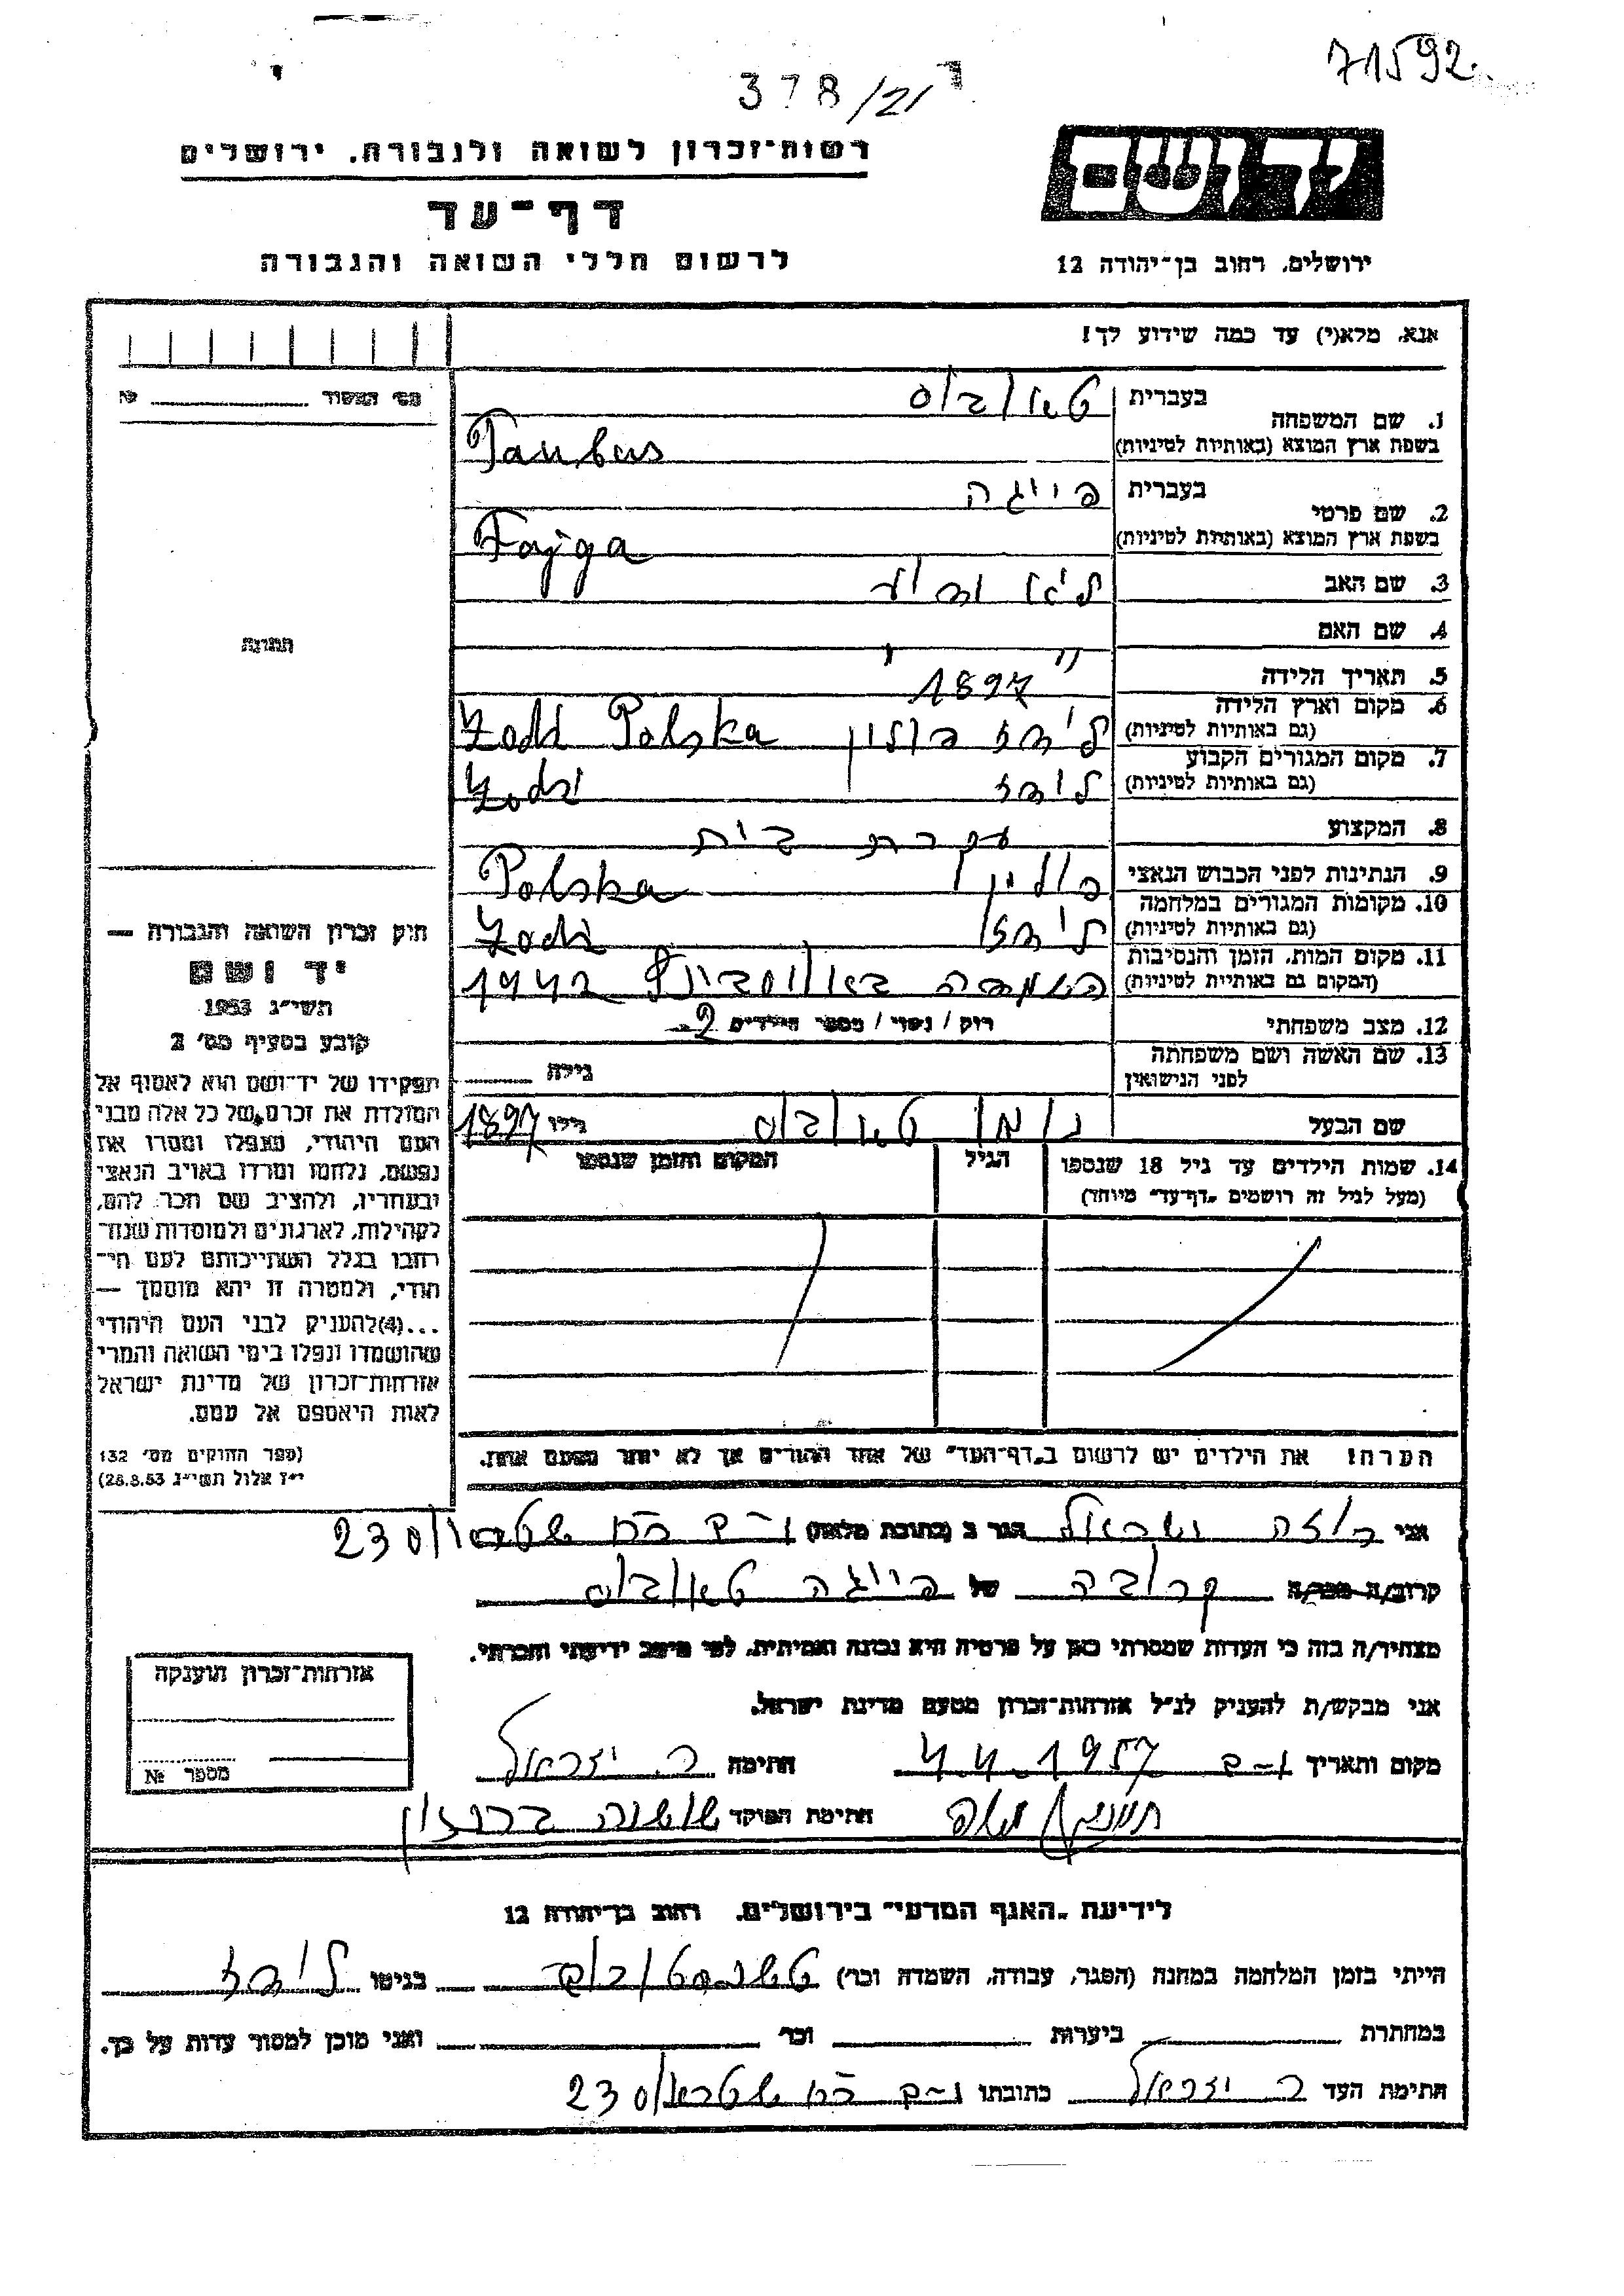 71592
378/21
רשות־זכרון לשואה ולגבורה, ירושלים
ידושם
דף־עד
לרשום חללי השואה והגבורה
ירושלים, רחוב בן־יהודה 12
אנא, מלא(י) עד כמה שידוע לך!
מס׳ המסור № 
1. שם המשפחה
בעברית טאובוס
בשפת ארץ המוצא (באותיות לטיניות) Taubus
2. שם פרטי
בעברית פייגה
בשפת ארץ המוצא (באותיות לטיניות) Fajga
3. שם האב
4. שם האם
תמונה
5. תאריך הלידה 1897
6. מקום וארץ הלידה
(גם באותיות לטיניות) לודז פולין Łodź Polska
7. מקום המגורים הקבוע
(גם באותיות לטיניות) לודז Łodzi
8. המקצוע עקרת בית
9. הנתינות לפני הכבוש הנאצי פולין Polska
10. מקומות המגורים במלחמה
(גם באותיות לטיניות) לודז Łodź
11. מקום המות, הזמן והנסיבות
(המקום גם באותיות לטיניות) הושמדה באושביץ 1942
12. מצב משפחתי רוק / נשוי / מספר הילדים 2
13. שם האשה ושם משפחתה
לפני הנישואין גילה
שם הבעל טאובוס גילו 1897
14. שמות הילדים עד גיל 18 שנספו הגיל המקום והזמן שנספו
(מעל לגיל זה רושמים „דף־עד” מיוחד)
הערה! את הילדים יש לרשום ב„דף־העד” של אחד ההורים אך לא יותר מפעם אחת.
חוק זכרון השואה והגבורה —
יד ושם
תשי״ג 1953
קובע בסעיף מס׳ 2
תפקידו של יד־ושם הוא לאסוף אל
המולדת את זכרם של כל אלה מבני
העם היהודי, שנפלו ומסרו את
נפשם, נלחמו ומרדו באויב הנאצי
ובעוזריו, ולהציב שם וזכר להם,
לקהילות, לארגונים ולמוסדות שנח־
רבו בגלל השתייכותם לעם הי־
הודי, ולמטרה זו יהא מוסמך —
...(4)להעניק לבני העם היהודי
שהושמדו ונפלו בימי השואה והמרי
אזרחות־זכרון של מדינת ישראל
לאות היאספם אל עמם.
(ספר החוקים מס׳ 132
י״ז אלול תשי״ג 28.8.53)
אני רוזה ישראל הגר ב (כתובת מלאה) 230
קרוב/ה מכר/ה קרובה של פייגה טאובוס
מצהיר/ה בזה כי העדות שמסרתי כאן על פרטיה היא נכונה ואמיתית, לפי מיטב ידיעתי והכרתי.
אני מבקש/ת להעניק לנ״ל אזרחות־זכרון מטעם מדינת ישראל.
מקום ותאריך 4.4.1957 חתימה ר. ישראל
חתימת הפוקד
אזרחות־זכרון תוענקה
מספר №
לידיעת „האגף המדעי” בירושלים, רחוב בן־יהודה 12
הייתי בזמן המלחמה במחנה (הסגר, עבודה, השמדה וכו׳) בגיטו לודז
במחתרת ביערות וכו׳ ואני מוכן למסור עדות על כך.
חתימת העד ר. ישראל כתובתו 230